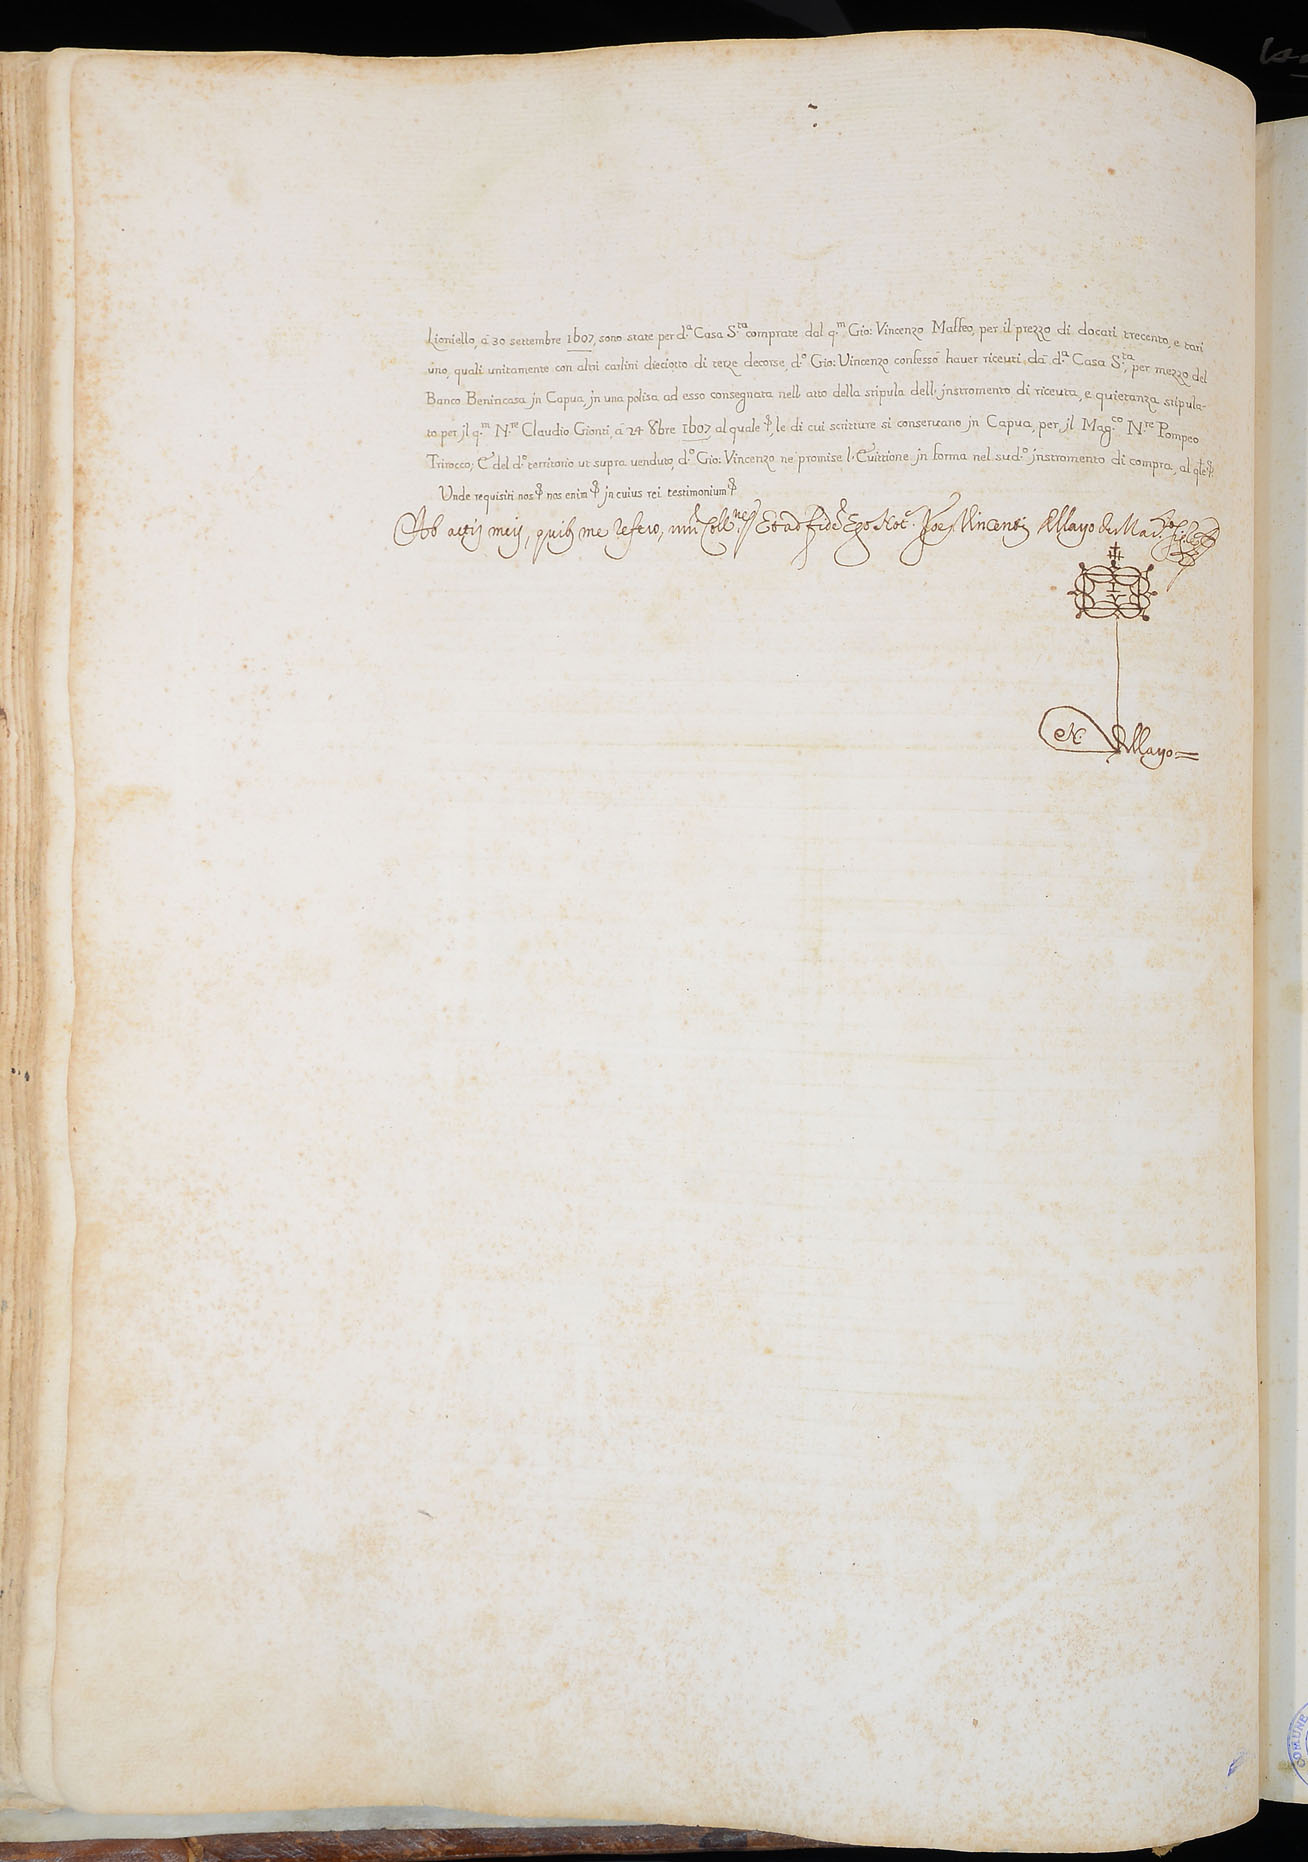 Lioniello, à 30 settembre 1607, sono state per d.ª Casa S.ta comprate dal q.m Gio: Vincenzo Maffeo, per il prezzo di docati trecento, e tarì
uno, quali unitamente con altri carlini dieciotto di terze decorse, d.º Gio: Vincenzo confessò haver riceuti dà d.ª Casa S.ta, per mezzo del
Banco Benincasa jn Capua, jn una polisa ad esso consegnata nell atto della stipula dell' jnstromento di riceuta, e quietanza stipula-
to per jl q.m N.re Claudio Gionti, à 24 8bre 1607, al quale, le di cui scritture si conservano jn Capua, per jl Mag.co N.re Pompeo
Trirocco; E del d.º territorio ut supra venduto, d.º Gio: Vincenzo ne promise l'Evittione jn forma nel sud.º jnstromento di compra, al qle
Unde requisiti nos nos enim jn cuius rei testimonium
Ab actis meis, quib9 me refero, Coll.ne Et ad fid Ego Not.s Joes Vincentis de Mayo de Mad.
N. de Mayo =
COMUNE